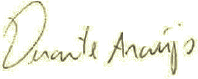 Duarte Araújo